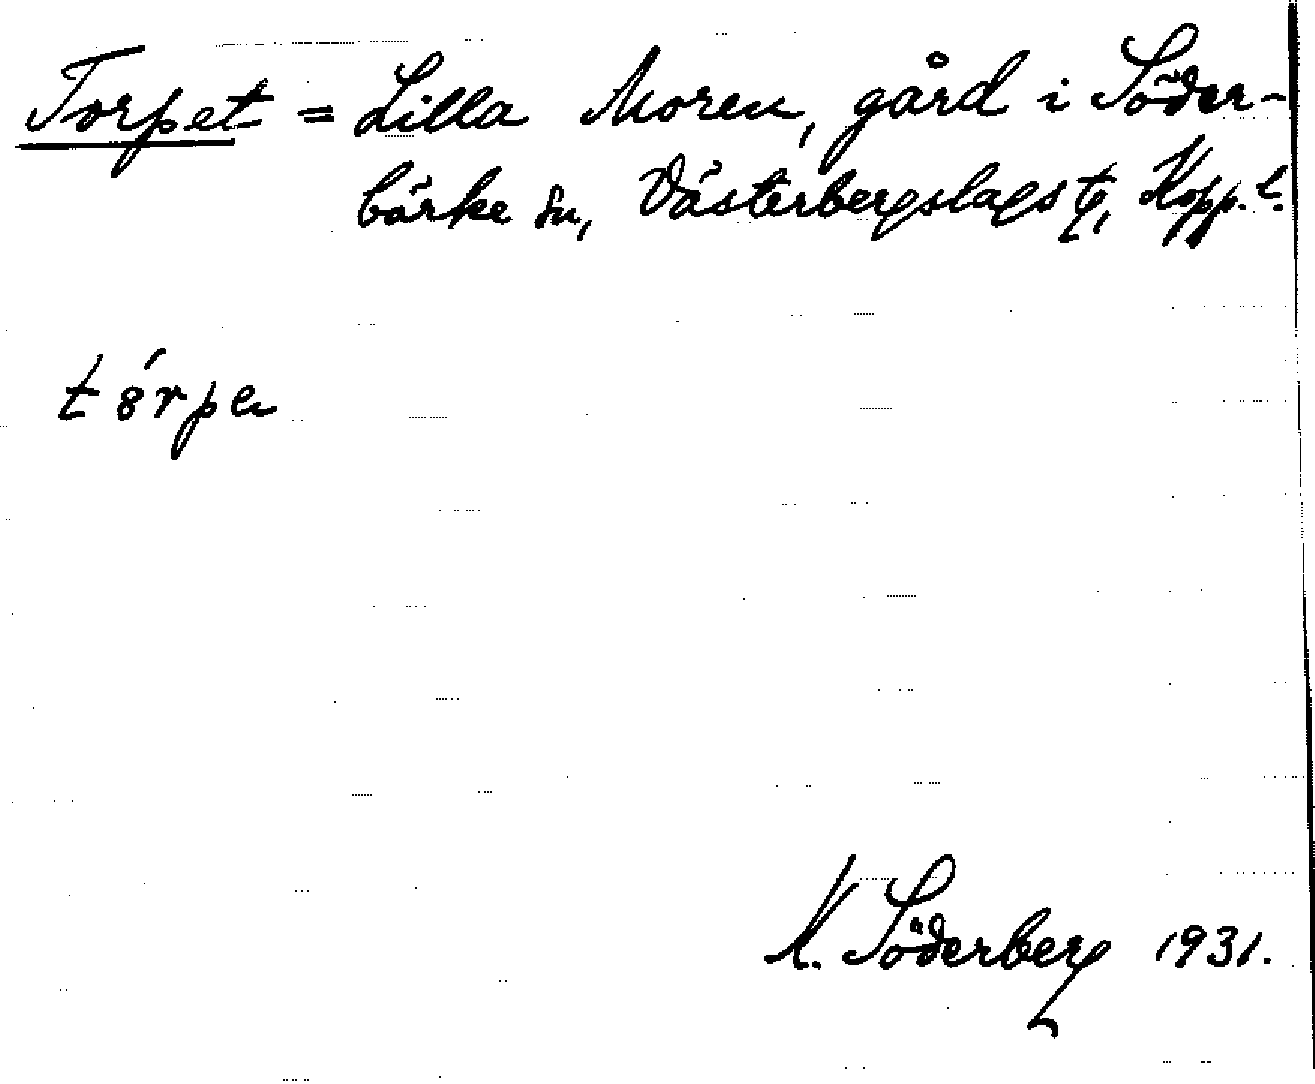 Torpet = Lilla Moren, gård i Söder-
bärke sn, Västerbergslags tg, Kopp. l.
t8́rpa
K. Söderberg 1931.